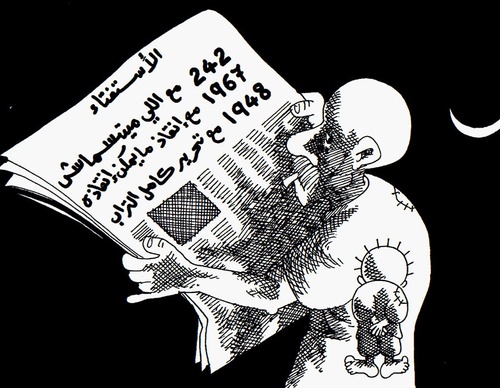 الأستفتاء
242 مع اللي ميتسماش
1967 مع إنقاذ ما يمكن إنقاذه
1948 مع تحرير كامل التراب